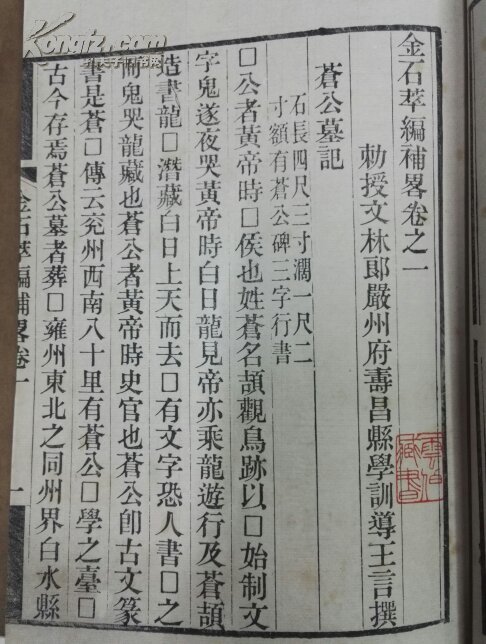 金石萃編補畧卷之一
勅授文林郎嚴州府壽昌縣學訓導王言撰
蒼公墓記
石長四尺三寸濶一尺二
寸額有蒼公碑三字行書
□公者黃帝時□侯也姓蒼名頡觀鳥跡以□始制文
字鬼遂夜哭黃帝時白日龍見帝亦乘龍遊行及蒼頡
造書龍□潛藏白日上天而去□有文字恐人書□之
而鬼哭龍藏也蒼公者黃帝時史官也蒼公卽古文篆
書是蒼□傳云兖州西南八十里有蒼公□學之臺□
古今存焉蒼公墓者葬□雍州東北之同州界白水縣
金石萃編補畧卷一
一
Kongfz.com